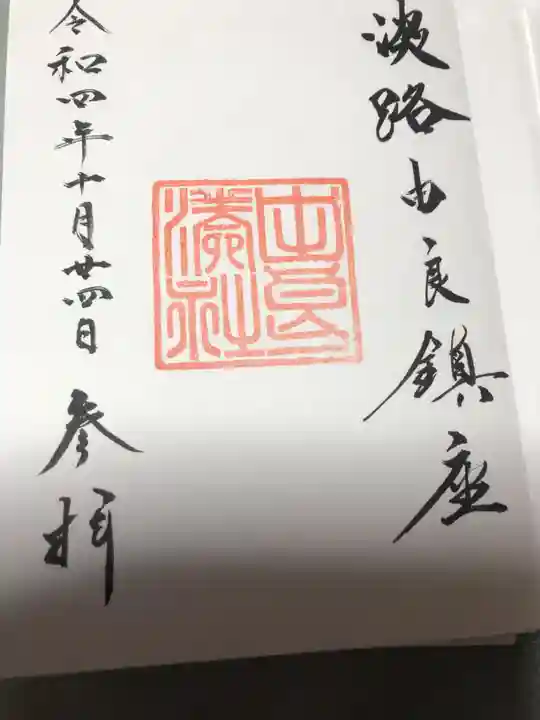 淡路由良鎮座
由良
湊社
令和四年十月廿四日 参拝